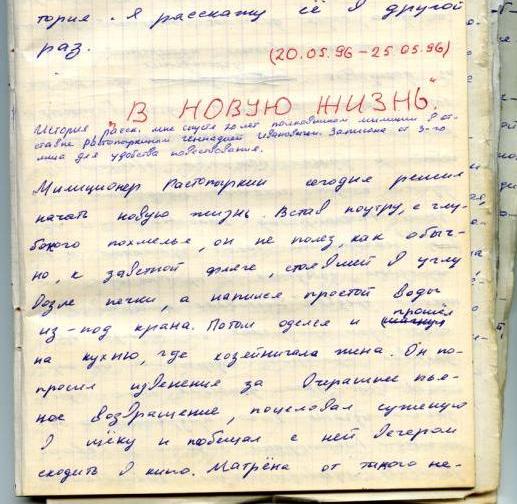 тория. Я расскажу её в другой
раз.
(20.05.96 – 25.05.96)
"В НОВУЮ ЖИЗНЬ."
История расск. мне спустя 20 лет полковником милиции в от-
ставке Растопыркиным Геннадием Ивановичем. Записана от 3-го
лица для удобства повествования.
Милиционер Растопыркин сегодня решил
начать новую жизнь. Встав поутру, с глу-
бокого похмелья, он не полез, как обыч-
но, к заветной фляге, стоявшей в углу
возле печки, а напился простой воды
из-под крана. Потом оделся и прошёл
на кухню, где хозейничала жена. Он по-
просил извенения за вчерашнее пья-
ное возвращение, поцеловал суженую
в щёку и пообещал с ней вечером
сходить в кино. Матрёна от такого не-